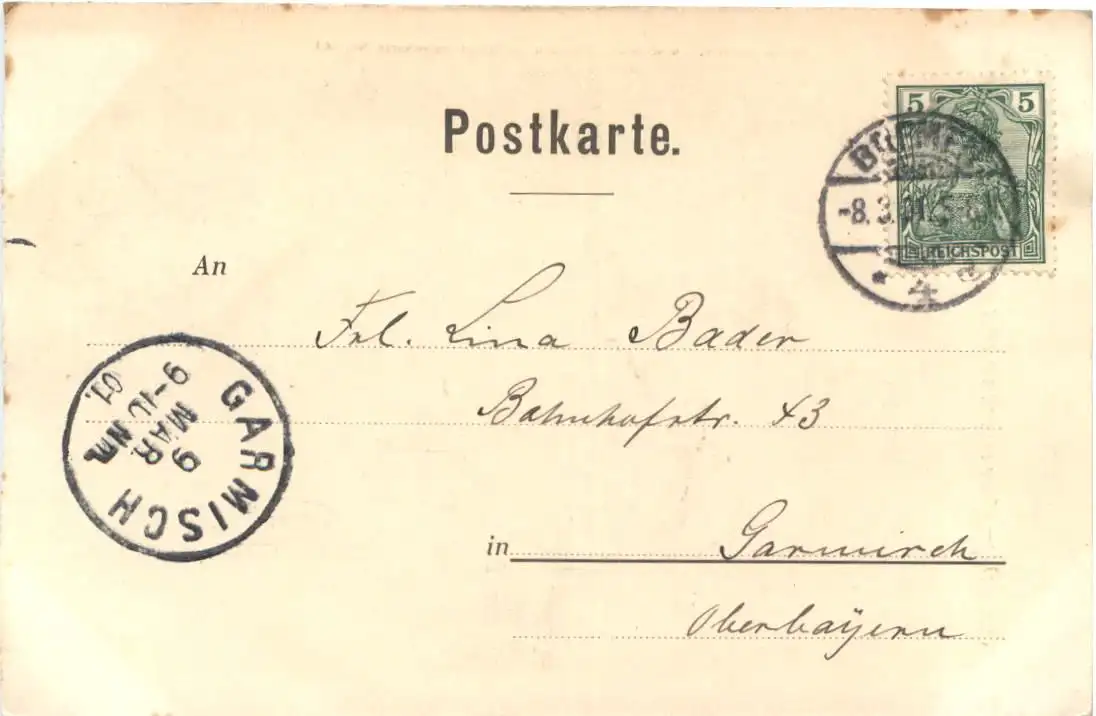 Postkarte.
5 5
REICHSPOST
-8.3.01.5-
4
An
Frl. Lina Bader
Bahnhofstr. 43
in Garmisch
Oberbayern
GARMISCH
9 MAR
9-10 Nm.
01.